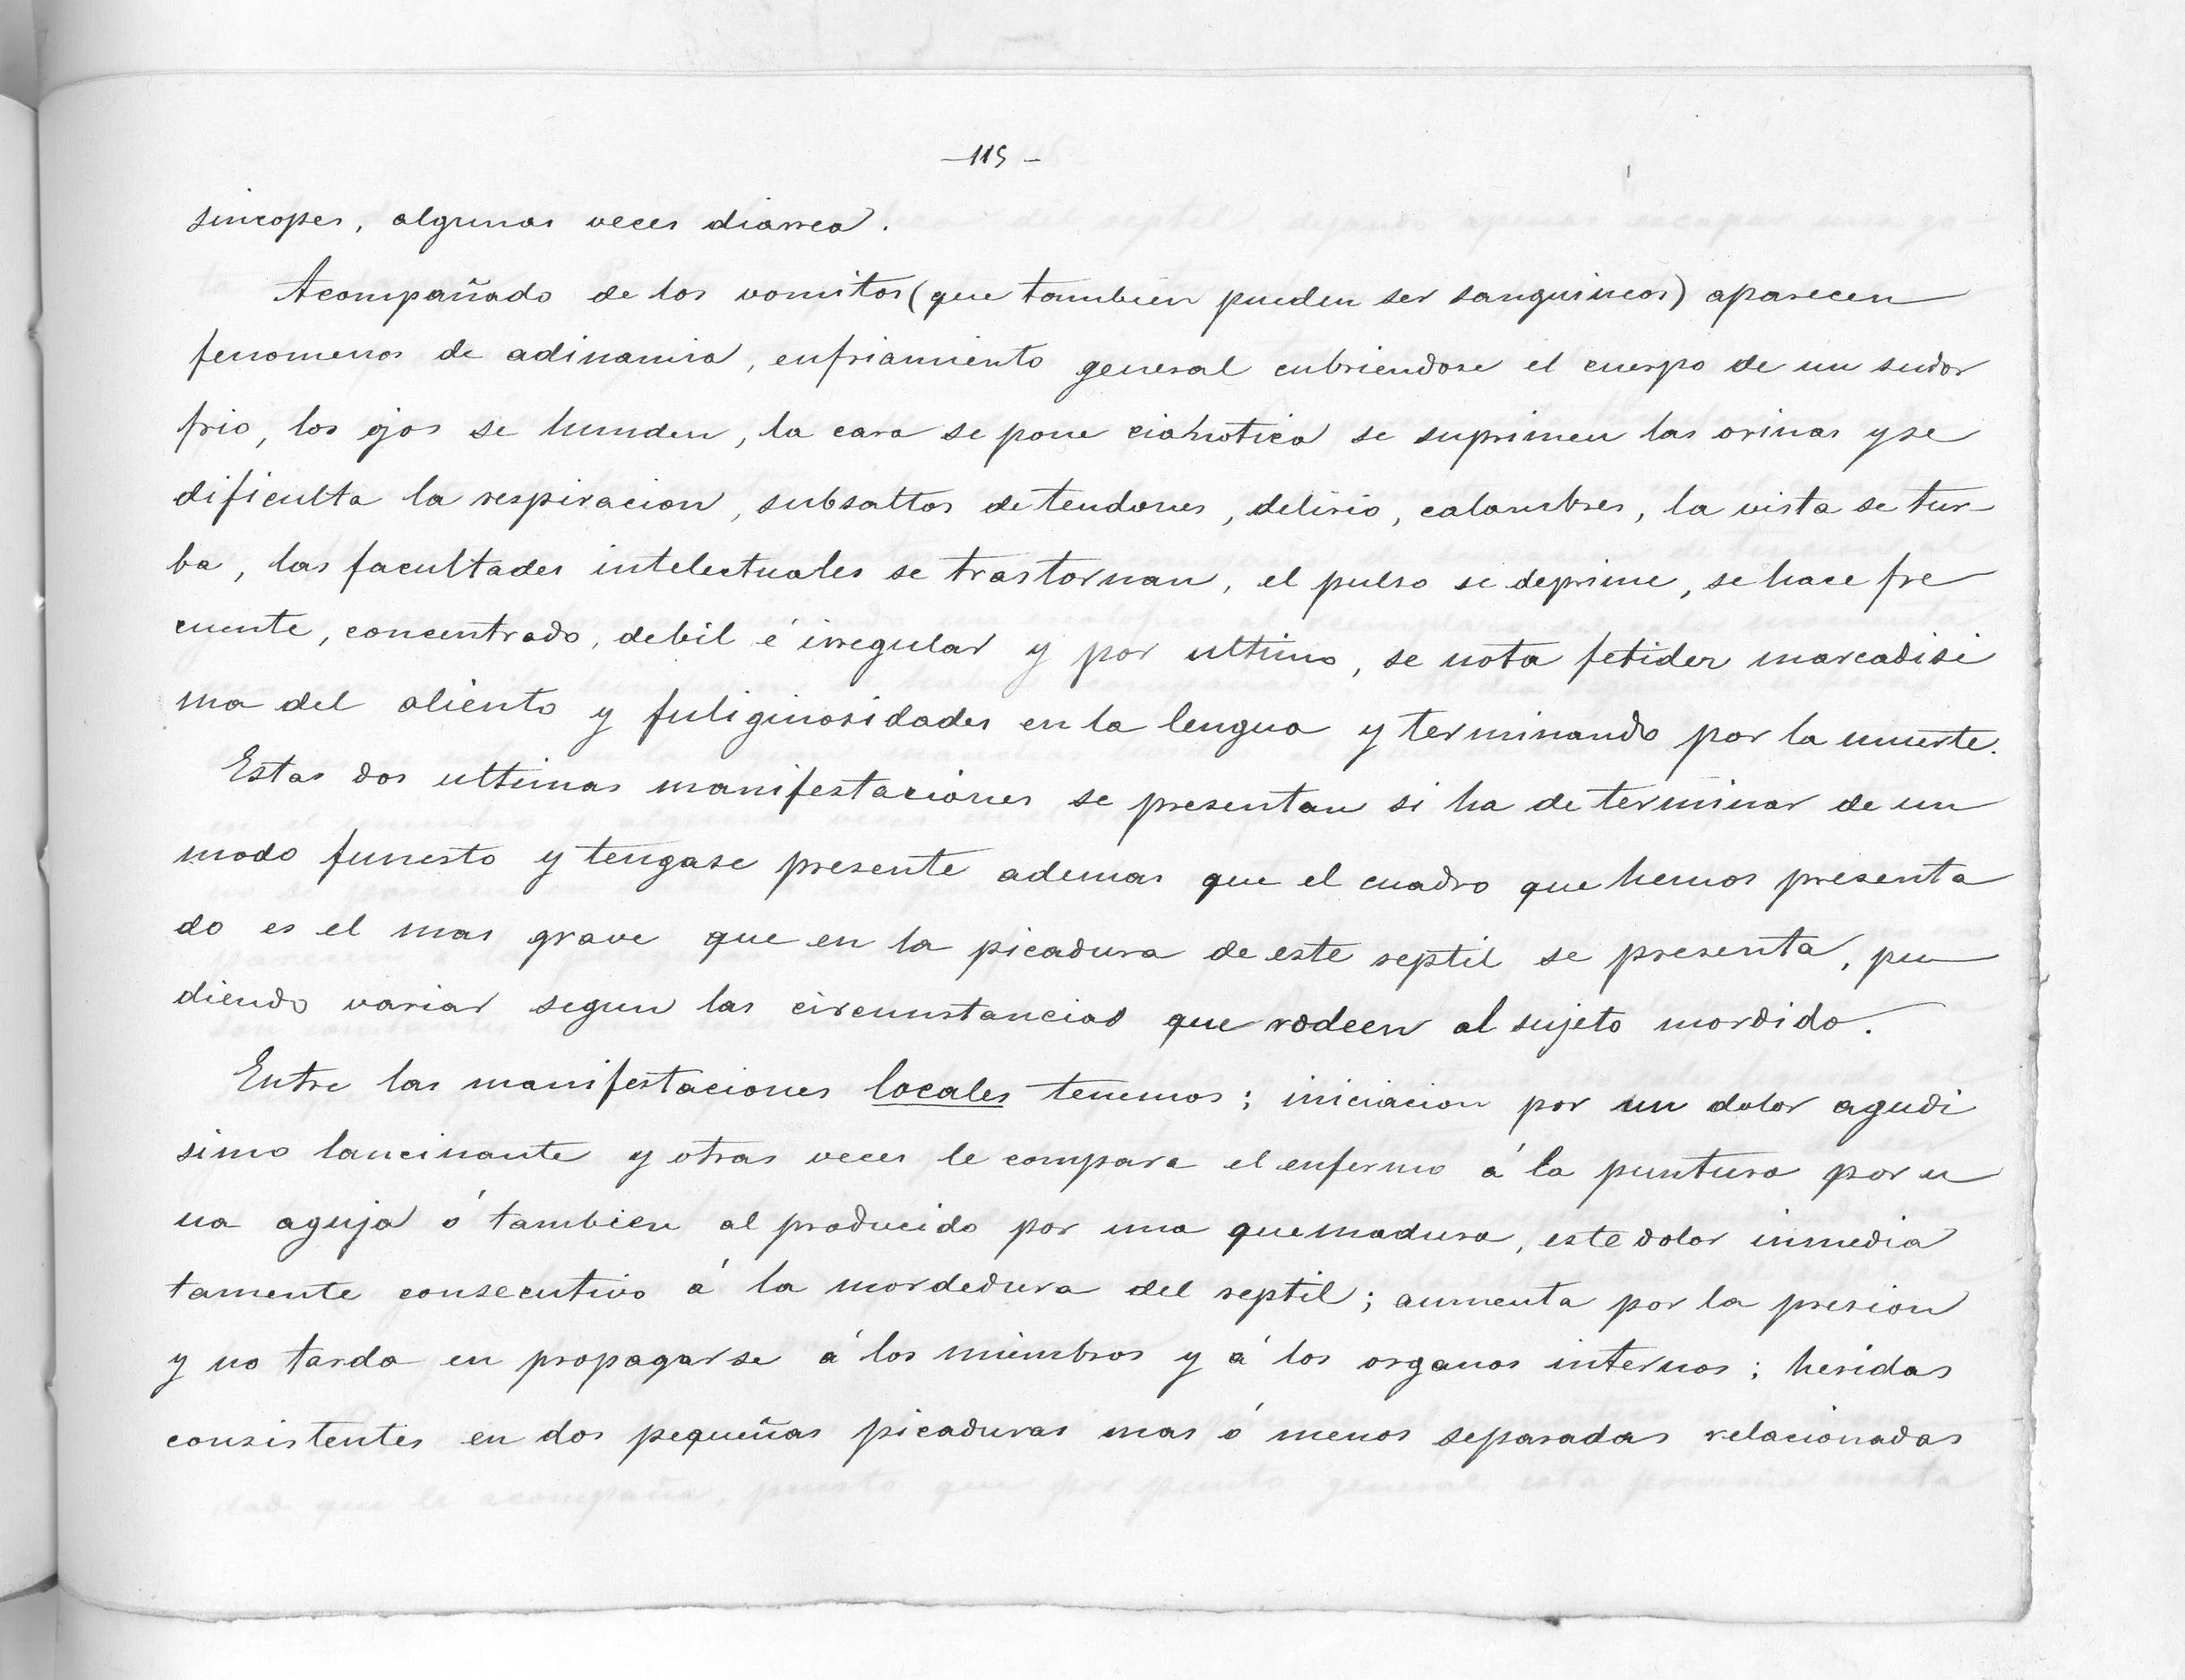 —115—
sincopes, algunas veces diarrea.
Acompañado de los vomitos (que tambien pueden ser sanguineos) aparecen
fenomenos de adinamia, enfriamiento general cubriendose el cuerpo de un sudor
frio, los ojos se hunden, la cara se pone cianotica se suprimen las orinas y se
dificulta la respiracion, subsaltos de tendones, delirio, calambres, la vista se tur-
ba, las facultades intelectuales se trastornan, el pulso se deprime, se hace fre
cuente, concentrado, debil é irregular y por ultimo, se nota fetidez marcadisi
ma del aliento y fuliginosidades en la lengua y terminando por la muerte.
Estas dos ultimas manifestaciones se presentan si ha de terminar de un
modo funesto y tengase presente ademas que el cuadro que hemos presenta
do es el mas grave que en la picadura de este reptil se presenta, pu
diendo variar segun las circunstancias que rodeen al sujeto mordido.
Entre las manifestaciones locales tenemos; iniciacion por un dolor agudi
simo lancinante y otras veces le compara el enfermo á la puntura por u
na aguja ó tambien al producido por una quemadura, este dolor inmedia
tamente consecutivo á la mordedura del reptil; aumenta por la presion
y no tarda en propagarse á los miembros y á los organos internos; heridas
consistentes en dos pequeñas picaduras mas ó menos separadas relacionadas